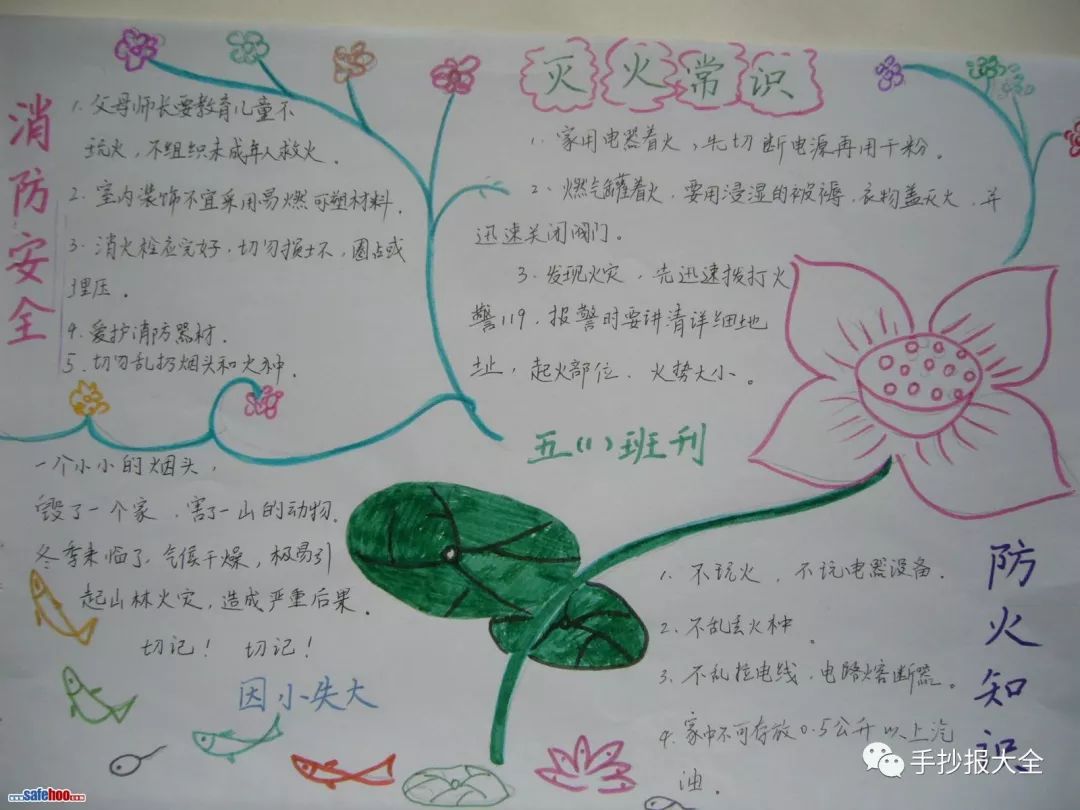 消防安全
1. 父母师长要教育儿童不
玩火,不组织未成年人救火。
2. 室内装饰不宜采用易燃可塑材料.
3. 消火栓应完好,切勿损坏,圈占或
埋压.
4. 爱护消防器材.
5. 切勿乱扔烟头和火种.
灭火常识
1. 家用电器着火,先切断电源再用干粉。
2、燃气罐着火,要用浸湿的被褥、衣物盖灭火,并
迅速关闭阀门。
3. 发现火灾,先迅速拨打火
警119,报警时要讲清详细地
址,起火部位、火势大小。
五(1)班刊
一个小小的烟头,
毁了一个家、害了一山的动物.
冬季来临了,气候干燥,极易引
起山林火灾,造成严重后果.
切记! 切记!
因小失大
防火知识
1. 不玩火,不玩电器设备.
2. 不乱丢火种.
3. 不乱拉电线,电路熔断器。
4. 家中不可存放0.5公升以上汽
油.
手抄报大全
...safehoo...